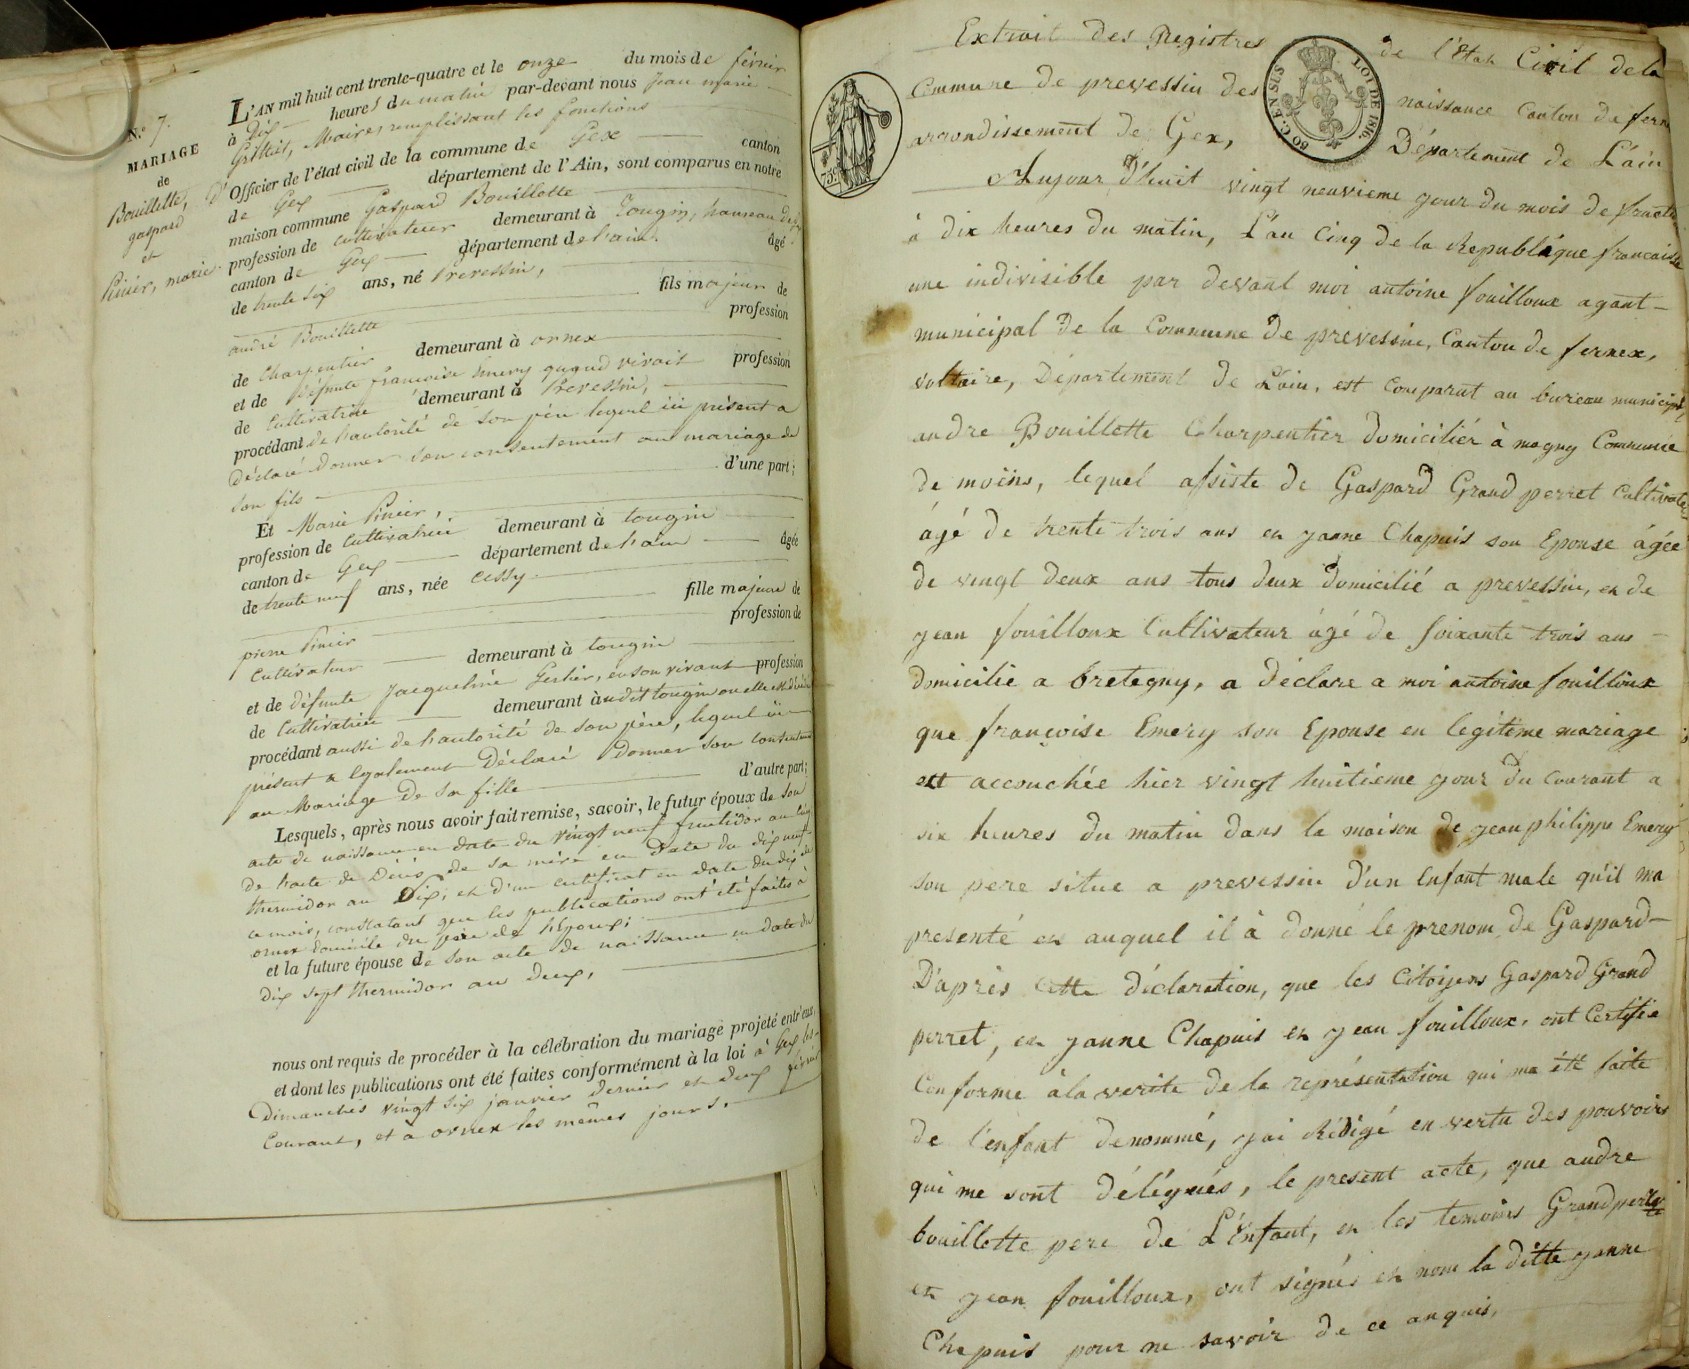 N.° 7.
MARIAGE
de
Bouillette,
gaspard
et
Pinier, marie
L'AN mil huit cent trente-quatre et le onze du mois de février
à Dix heures du matin par-devant nous jean marie
Maire, remplissant les fonctions
D'Officier de l'état civil de la commune de Gex canton
de Gex département de l'Ain, sont comparus en notre
maison commune Gaspard Bouillette
profession de cultivateur demeurant à Tougin, hameau de
canton de Gex département de l'ain. âgé
de trente six ans, né Prevessin,
fils majeur de
andré Bouillette profession
de charpentier demeurant à ornex
et de Défunte françoise Emery quand vivait profession
de Cultivatrice demeurant à Prevessin,
procédant de l'autorité de son père lequel ici présent a
Déclaré donner son consentement au mariage de
son fils d'une part;
Et Marie Pinier,
profession de Cultivatrice demeurant à tougin
canton de Gex département de l'ain âgée
de trente neuf ans, née Cessy
fille majeure de
pierre Pinier profession de
Cultivateur demeurant à tougin
et de défunte Jacqueline Gerlier, en son vivant profession
de Cultivatrice demeurant audit tougin ou elle est décédée
procédant aussi de l'autorité de son père, lequel ici
présent a légalement Déclaré Donner son consentement
au Mariage De sa fille d'autre part;
Lesquels, après nous avoir fait remise, savoir, le futur époux de son
acte de naissance en date du vingt neuf fructidor an cinq
De l'acte de Décès de sa mère en Date du dix neuf
thermidor an Dix; et d'un certificat en date du dix de
ce mois, constatant que les publications ont été faites à
ornex domicile du père de l'Epoux;
et la future épouse de son acte de naissance en date du
dix sept thermidor an deux,
nous ont requis de procéder à la célébration du mariage projeté entr'eux,
et dont les publications ont été faites conformément à la loi à Gex, les
Dimanches vingt six janvier dernier et deux février
Courant, et à ornex les mêmes jours.
Extrait des Registres de l'état Civil de la
Commune de prevessin des naissance Canton de fern
arrondissement de Gex, Département de L'ain
75c.
80 C. EN SUS
LOI DE 1816.
Aujour d'huit vingt neuvieme jour du mois de fructi
à dix heures du matin, L'an Cinq de la Republique francaise
une indivisible par devant moi antoine fouilloux agant
municipal de la Commune de prevessin, Canton de fernex,
voltaire, Département de L'ain, est comparut au bureau municipal
andre Bouillette Charpentier domiciliér à magny Commune
de moëns, lequel assiste de Gaspard Grand perret Cultivateur
âgé de trente trois ans et janne Chapuis son Epouse âgée
de vingt deux ans tous deux domicilié a prevessin, et de
jean fouilloux Cultivateur âgé de soixante trois ans
domicilie a bretegny, a déclare a moi antoine fouilloux
que françoise Emery son Epouse en legitime mariage
est accouchée hier vingt huitieme jour du Courant a
six heures du matin dans la maison de jean philippe Emery
son pere situe a prevessin d'un Enfant male qu'il ma
presenté et auquel il à donné le prenom de Gaspard
D'après cette déclaration, que les Citoyens Gaspard Grand
perret, et janne Chapuis et jean fouilloux, ont Certifié
Conforme à la verite de la représentation qui ma été faite
de l'enfant denommé, jai rédigé en vertu des pouvoirs
qui me sont délégués, le present acte, que andre
bouillette pere de L'Enfant, et les temoins Grandperret
et jean fouilloux, ont signés et nom la ditte janne
Chapuis pour ne savoir de ce anquis,